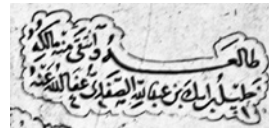 طالعه وانتقى منه مالكه
خليل بن ايبك بن عبد الله الصفدي عفا الله عنه